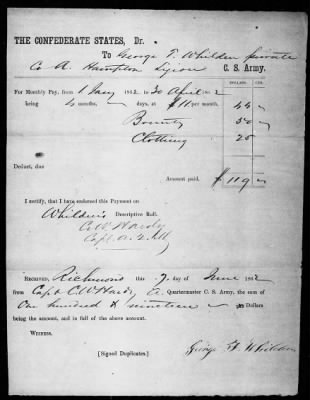 THE CONFEDERATE STATES, Dr.
To George T. Whilden private
Co A. Hampton Legion C. S. Army.
DOLLARS. CTS.
For Monthly Pay, from 1 Jany 1862 to 30 April 1862
being 4 months, days, at $11 per month, 44
Bounty 50
Clothing 25
Deduct, due
Amount paid, $119
I certify, that I have endorsed this Payment on
Whilden's Descriptive Roll.
C. W. Hardy
Capt. A. Q. M
RECEIVED, Richmond this 7 day of June 1862
from Capt C. W. Hardy, A. Quartermaster C. S. Army, the sum of
One hundred & nineteen Dollars
being the amount, and in full of the above account.
WITNESS.
George Whilden
[Signed Duplicates.]